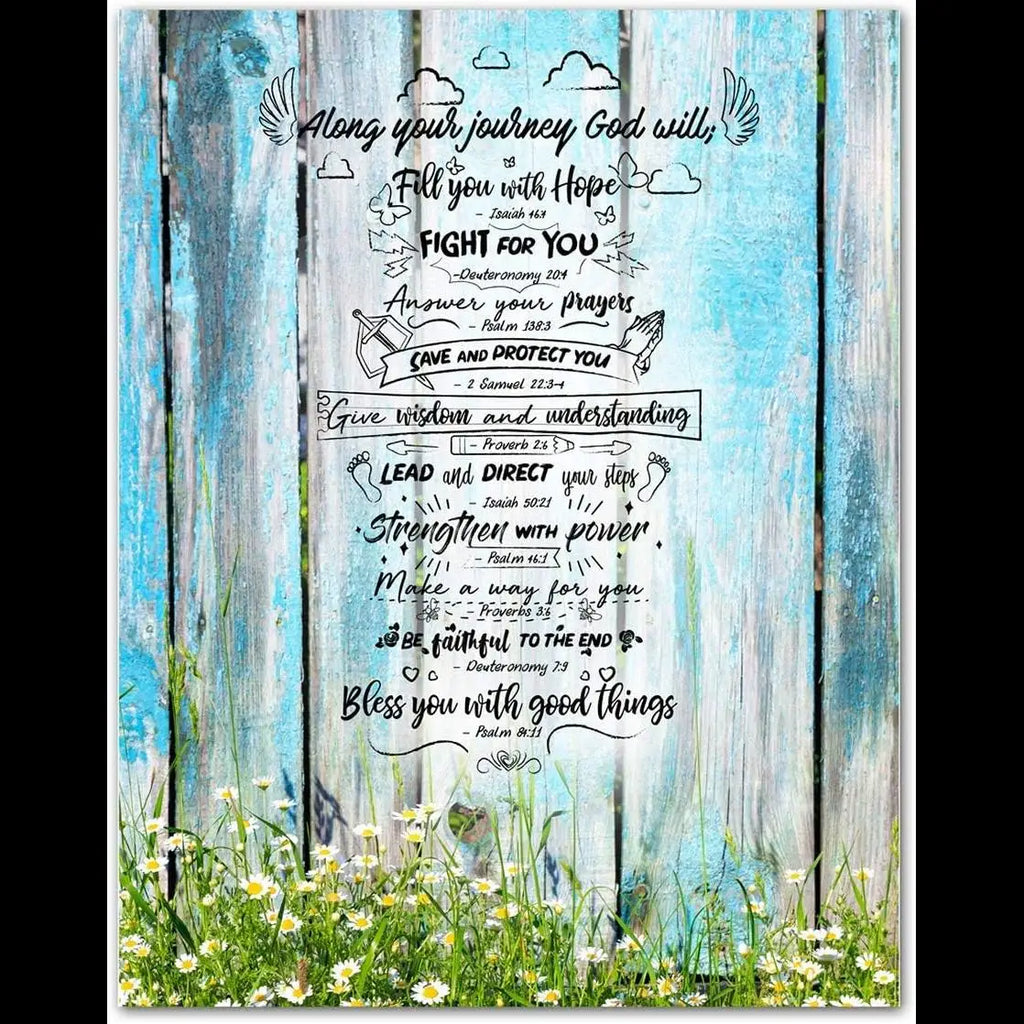 Along your journey God will;
Fill you with Hope
- Isaiah 46:4
FIGHT FOR YOU
-Deuteronomy 20:4
Answer your prayers
- Psalm 138:3
SAVE AND PROTECT YOU
- 2 Samuel 22:3-4
Give wisdom and understanding
- Proverb 2:6
LEAD and DIRECT your steps
- Isaiah 50:21
Strengthen WITH power
- Psalm 46:1
Make a way for you
- Proverbs 3:6
BE faithful TO THE END
- Deuteronomy 7:9
Bless you with good things
- Psalm 84:11